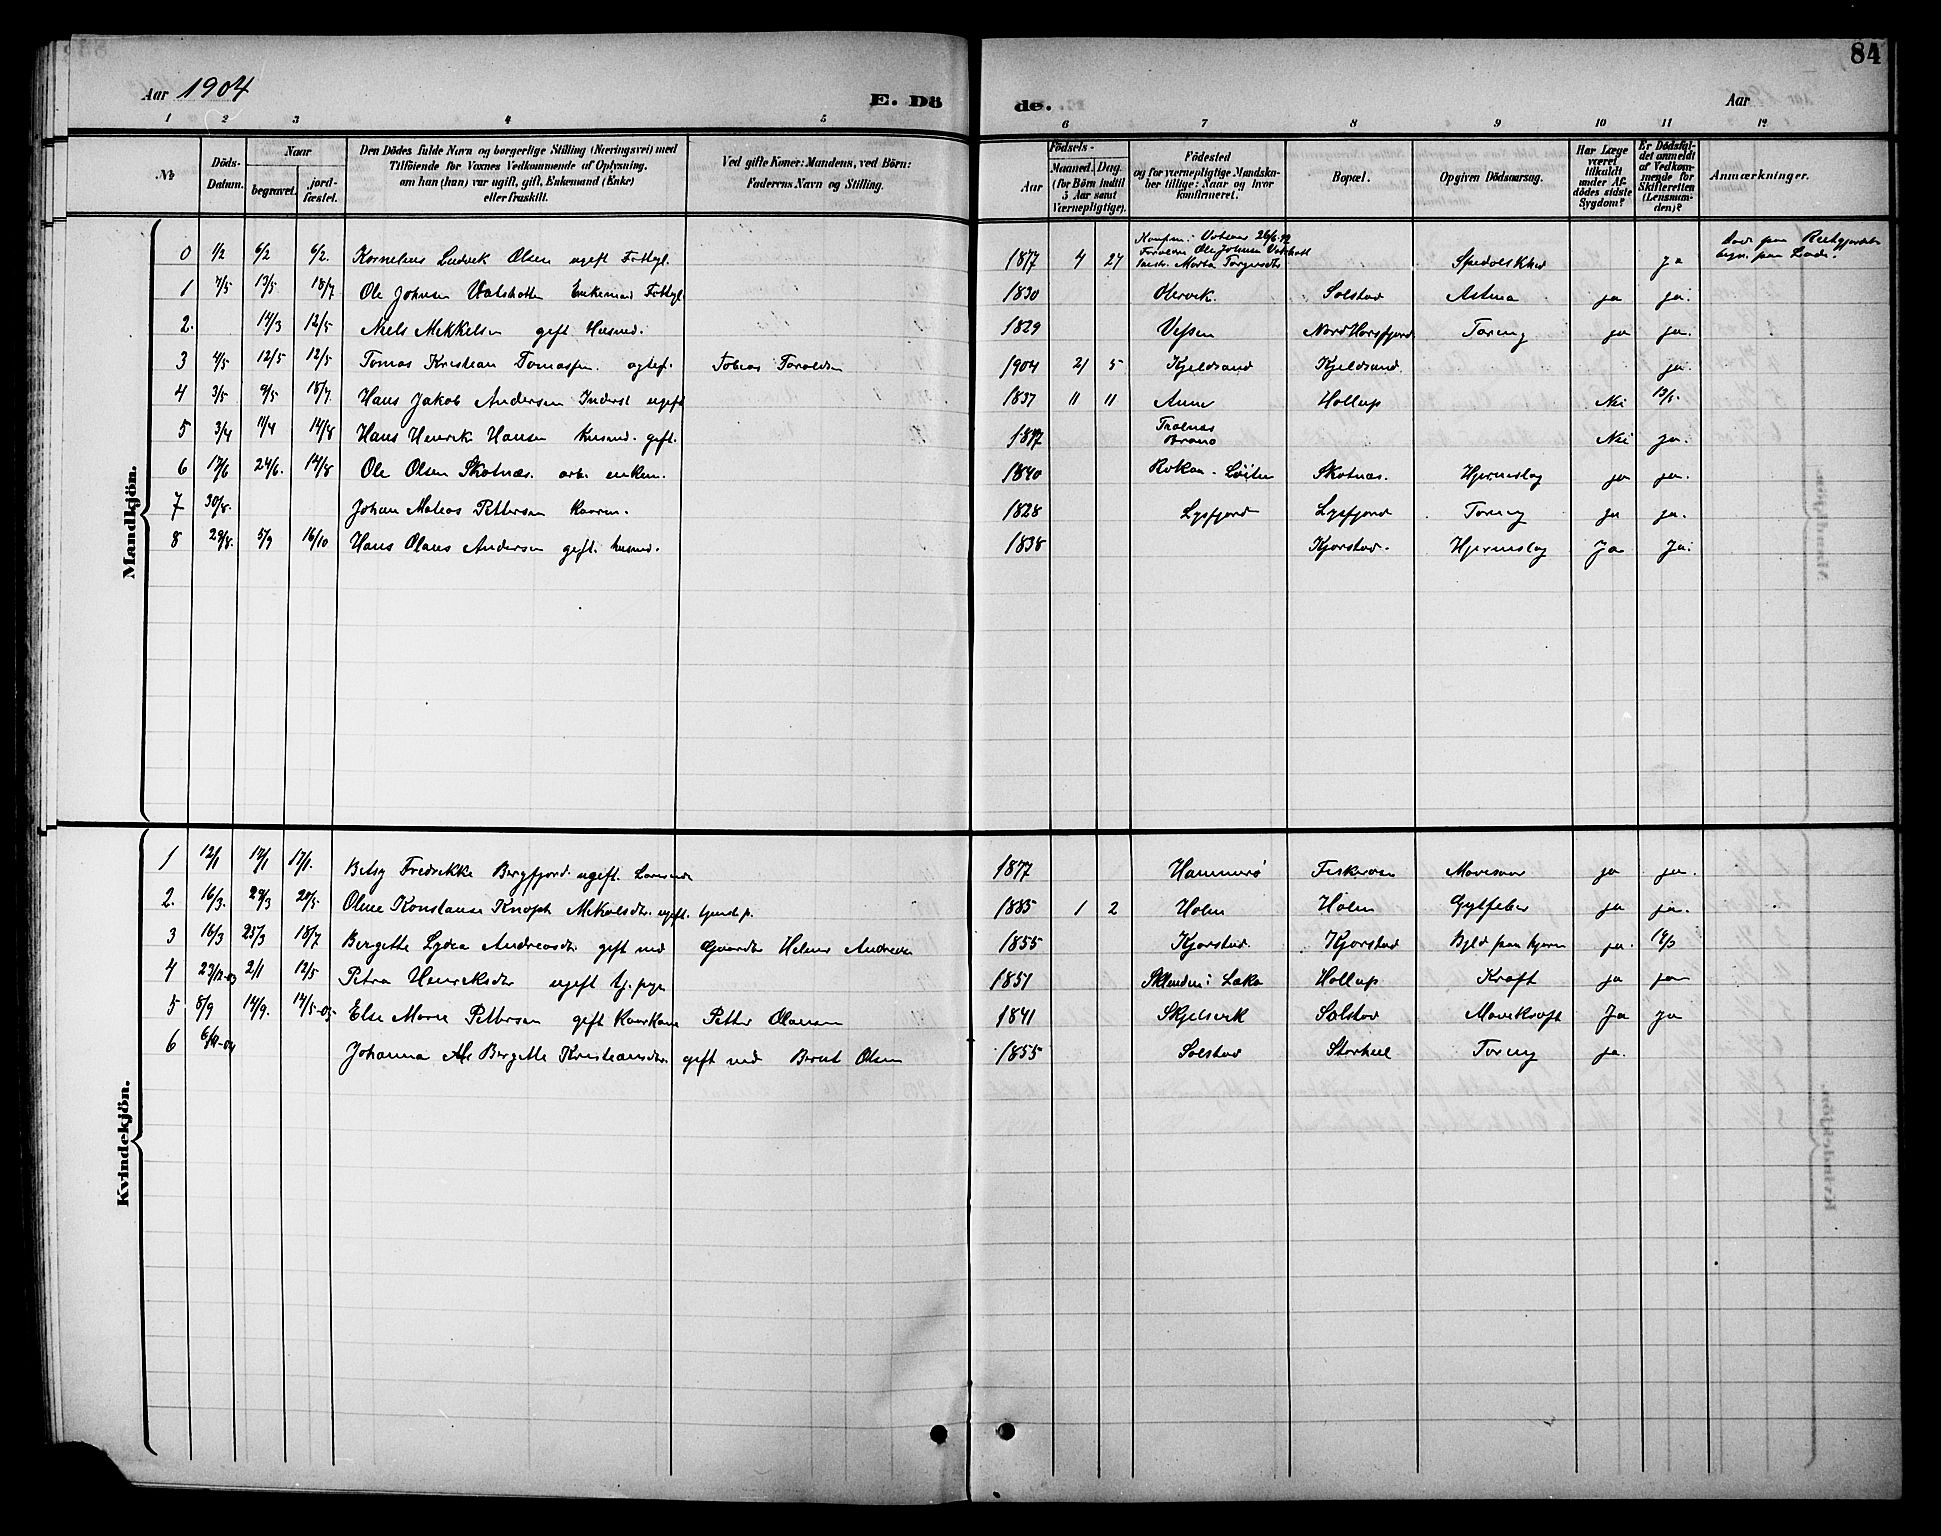 84
Aar 1904
E. Döde.
Aar
1 2 3 4 5 6 7 8 9 10 11 12
№
Döds-Datum.
Naar
begravet.
jord-fæstet.
Den Dödes fulde Navn og borgerlige Stilling (Næringsvei) med
Tilföiende for Voxnes Vedkommende af Oplysning,
om han (hun) var ugift, gift, Enkemand (Enke)
eller fraskilt.
Ved gifte Koner: Mandens, ved Börn:
Faderens Navn og Stilling.
Födsels-
Aar
Maaned. Dag.
(for Börn indtil
5 Aar samt
Værnepligtige).
Födested
og for værnepligtige Mandska-
ber tillige: Naar og hvor
konfirmeret.
Bopæl.
Opgiven Dödsaarsag.
Har Læge
været
tilkaldt
under Af-
dödes sidste
Sygdom?
Er Dödsfal-
det anmeldt
af Vedkom-
mende for
Skifteretten
(Lensman-
den)?
Anmærkninger.
Mandkjön.
0 1/2 6/2 6/2 Kornelius Ludvik Olsen ugift 1877 4 27 ja
1 7/5 13/5 18/7 Ole Johnsen Vatshatten Enkemand 1830 Olervik Solstad Astma ja ja.
2. 14/3 12/5 Niels Mikkelsen gift Husmd. 1829 Vefsen Nord Horsfjord Tæring ja ja.
3 4/5 12/5 12/5 Tomas Kristian Tomassen ægtef. Tobias Taraldsen 1904 21 5 Kjeldsand Kjeldsand ja.
4 3/5 9/5 18/7 Hans Jakob Andersen Inderst ugift 1837 11 11 Hollup Nei 13/5.
5 3/4 11/4 14/8 Hans Henrik Hansen Husmd. gift. Brønø Nei ja.
6 17/6 24/6. 14/8 Ole Olsen Skotnæs. arb. enkem. 1840 Skotnæs. Hjerneslag ja ja.
7 30/8. Johan Mateas Pettersen Kaarm. 1828 Lysfjord Lysfjord Tæring ja ja.
8 29/8. 5/9 16/10 Hans Olaus Andersen gift. husmd. 1838 Kjørstad. Hjerneslag Ja Ja.
Kvindekjön.
1 12/1 17/1 17/1. Betsy Fredrikke Bergfjord ugift. 1877 Hammerø Fiskerosen Mavesaar ja ja.
2. 16/3. 29/3 20/5. Oline Konstanse Knoph Mikalsdtr. ugift. tjenstp. 1885 1 2 Holm Holm Gylfeber ja ja.
3 16/3 25/3 18/7 Bergette Lydia Andreasdtr gift med Gaardbr Helmer Andreasen 1855 Kjørstad. Kjørstad Byld paa hjernen ja.
4 23/12-03 2/1 12/5 Petra Henriksdtr ugift tj. pige 1851 Sklinden i Leka Hollup Kræft ja ja
5 8/9 14/9. 14/5-05 Else Marie Pettersen gift Kaarkone Petter Olausen 1841 Skjelsvik Solstad Mavekræft Ja ja
6 Johanna Ale Bergette Kristiansdtr gift med Bernt Olsen 1855 Solstad Storheil Tæring ja.